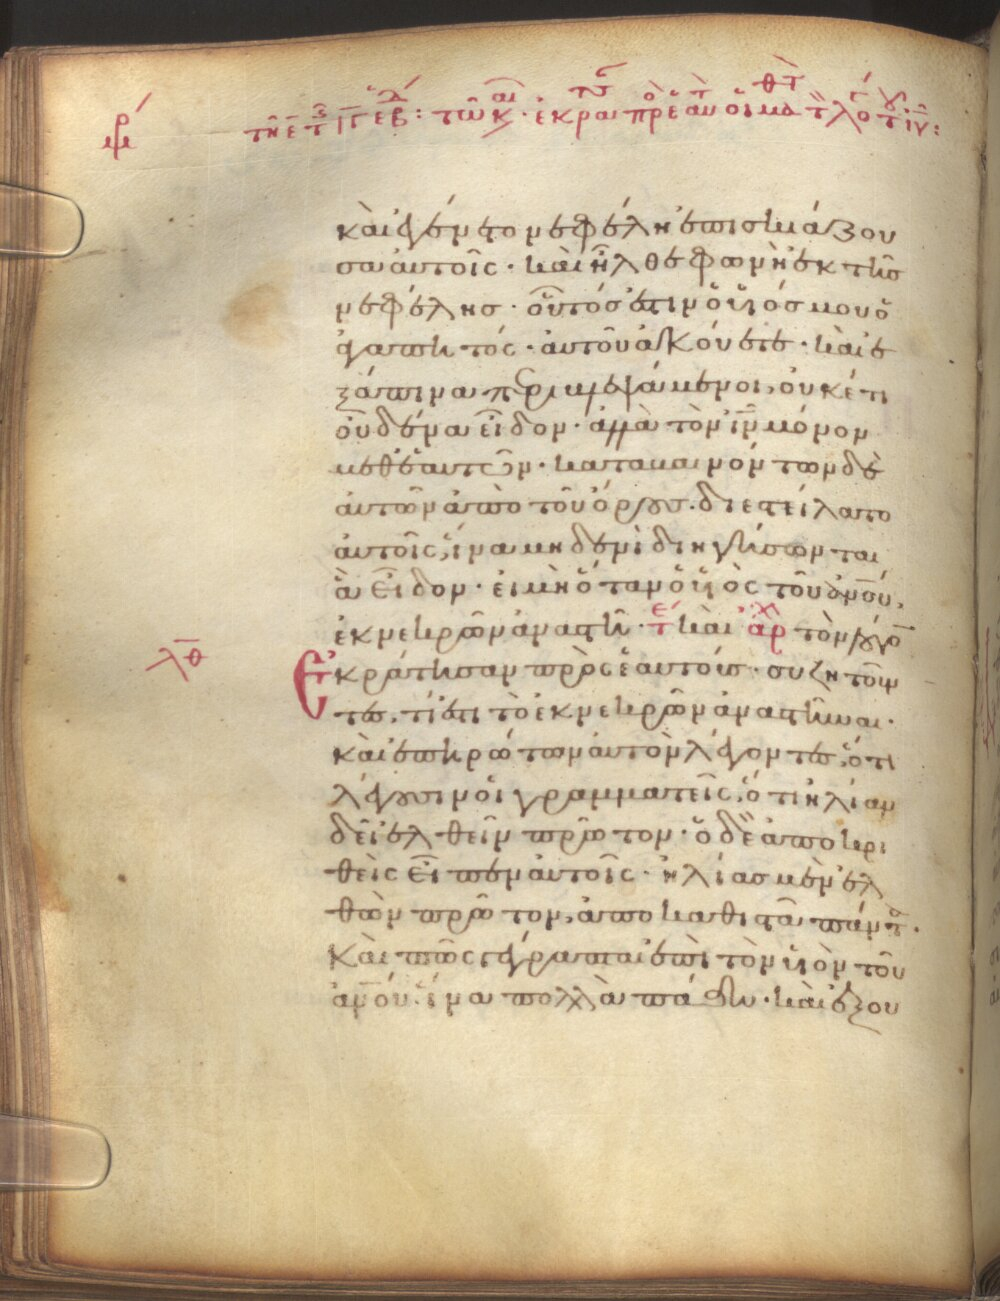 καὶ ἐγένετο νεφέλη ἐπισκιάζου
σα αὐτοῖς · καὶ ἦλθε φωνὴ ἐκ τῆς
νεφέλης · οὗτός ἐστιν ὁ υἱός μου ὁ
ἀγαπητός · αὐτοῦ ἀκούετε · καὶ ἐ
ξάπινα περιβλεψάμενοι, οὐκέτι
οὐδένα εἶδον · ἀλλὰ τὸν ἰν μόνον
μεθ' ἑαυτῶν · καταβαινόντων δὲ
αὐτῶν ἀπὸ τοῦ ὄρους · διεστείλατο
αὐτοῖς, ἵνα μηδενὶ διηγήσωνται
ἃ εἶδον · εἰ μὴ ὅταν ὁ υἱὸς τοῦ ἀνου,
ἐκ νεκρῶν ἀναστῆ · καὶ τὸν λόγον
λθ ἐκράτησαν πρὸς ἑαυτούς · συζητοῦν
τες, τί ἐστι τὸ ἐκ νεκρῶν ἀναστῆναι ·
καὶ ἐπηρώτων αὐτὸν λέγοντες, ὅτι
λέγουσιν οἱ γραμματεῖς, ὅτι ηλίαν
δεῖ ἐλθεῖν πρῶτον · ὁ δὲ ἀποκρι
θεὶς εἶπεν αὐτοῖς · ἠλίας μὲν ἐλ
θὼν πρῶτον, ἀποκαθιστᾶ πάντα ·
καὶ πῶς γέγραπται ἐπὶ τὸν υἱὸν τοῦ
ἀνου, ἵνα πολλὰ πάθη · καὶ ἐξου